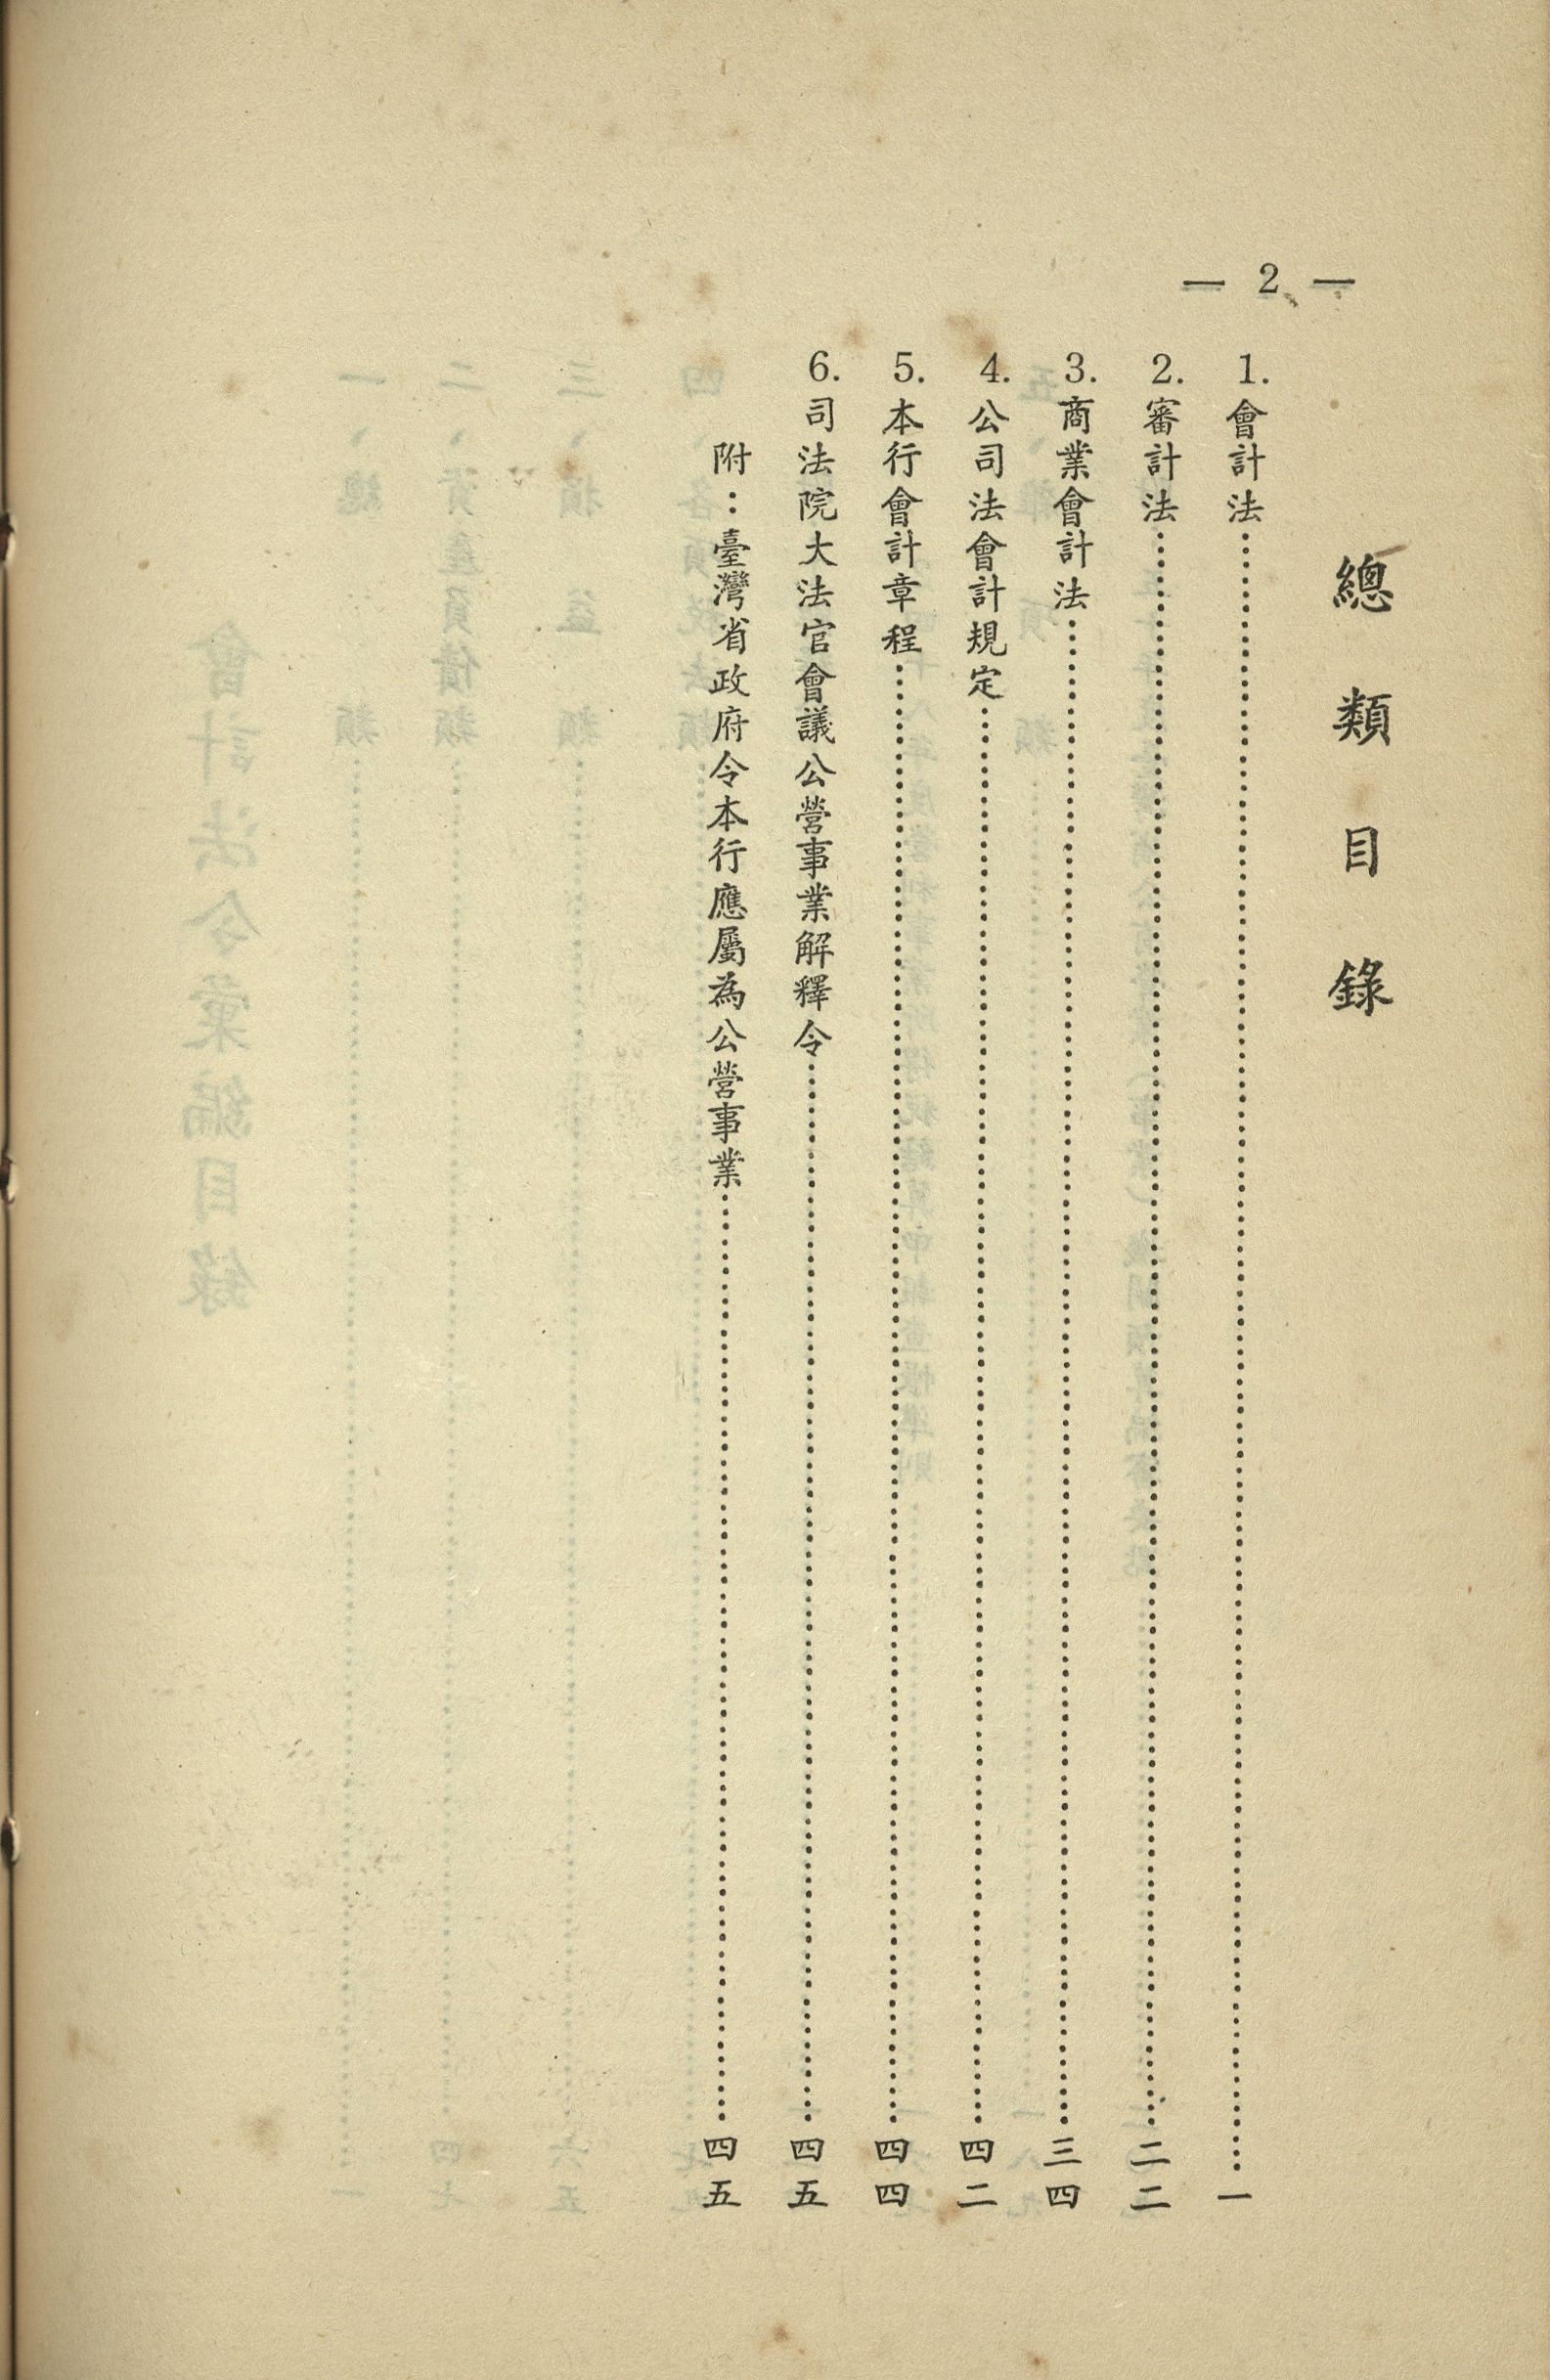 — 2 —
總類目錄
1.會計法……一
2.審計法……二二
3.商業會計法……三四
4.公司法會計規定……四二
5.本行會計章程……四四
6.司法院大法官會議公營事業解釋令……四五
附：臺灣省政府令本行應屬為公營事業……四五